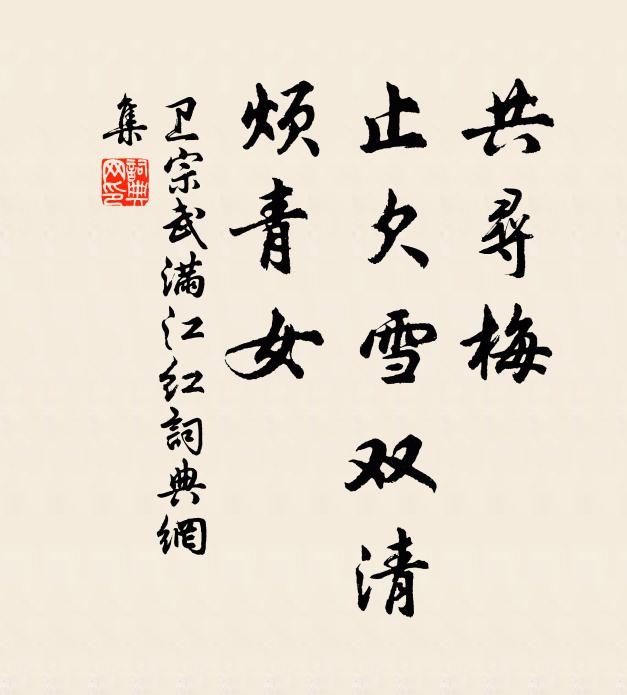 共尋梅
止欠雪双清
烦青女
卫宗武满江红詞典網
集
詞典网印